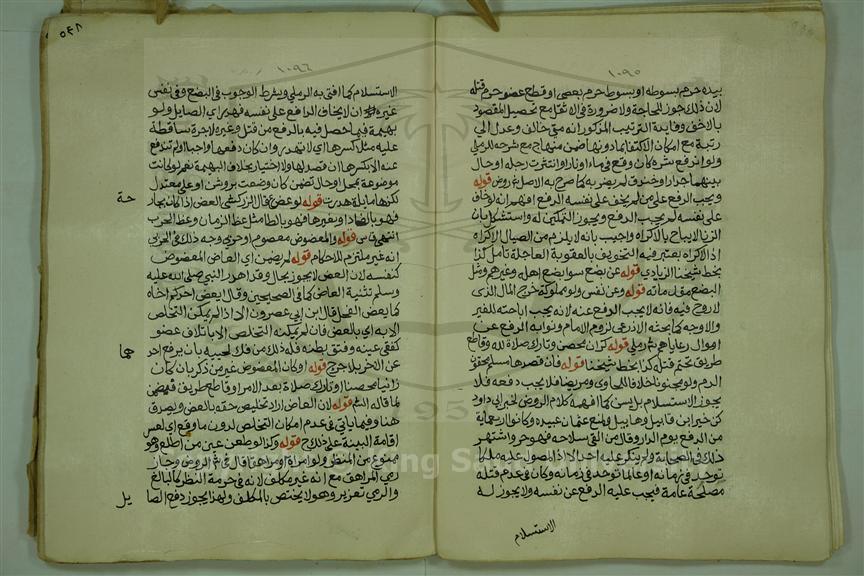 ١٠٩٥
بيده حرم بسوطه او بسوط حرم بعصى او قطع عضو حرم قتله
لان ذلك جوز للحاجة ولا ضرورة في الاثقل مع تحصيل المقصود
بالاخف وفايدة الترتيب المذكور انه متى خالف وعدل الي
رتبة مع امكان الاكتفا بما دونها ضمن منهاج مع شرحه للرملي
ولو اندفع شره كان وقع في ماء او نار او انكسرت رجله او حال
بينهما جدار او خندق لم يضربه كما صرح به الاصل ش روض قوله
ويجب الدفع على من لم يخف على نفسه الدفع افهم ان لو خاف
على نفسه لم يجب الدفع ويجوز التمكين له واستشكل بان
الزنا لا يباح بالاكراه واجيب بانه لا يلزم من الصيال الاكراه
اذ الاكراه يعتبر فيه التخويف بالعقوبة العاجلة تامل كذا
بخط شيخنا الزيادي قوله عن بضع سوا بضع اهله وغيرهم ومثل
البضع مقدماته قوله وعن نفس ولو مملوكة خرج المال الذى
لا روح فيه فانه لا يجب الدفع عنه لانه يجب اباحته للغير
والاوجه كما بحثه الاذرعي لزوم الامام ونوابه الدفع عن
اموال رعاياهم ش رملي قوله كزان محصن وتارك صلاة لله وقاطع
طريق تحتم قتله كذا بخط شيخنا قوله فان قصرها مسلم محقون
الدم ولو مجنونا خلافا للماوى ومريضا فلا يجب دفعه فلا
يجوز الاستسلام بل يسن كما افهمه كلام الروض لخبر ابي داود
كن خير ابن قابيل وهابيل ولمنع عثمان عبيده وكانوا اربعماية
من الدفع يوم الدار وقال من القى سلاحه فهو حر واشتهر
ذلك في الصحابة ولم ينكر عليه احد الا اذا المصول عليه ملكا
توحد في زمانه او عالما توحد في زمانه وكان في عدم قتله
مصلحة عامة فيجب عليه الدفع عن نفسه ولا يجوز له
الاستسلام
٥٤٨
١٠٩٦
الاستسلام كما افتى به الرملي ويشرط الوجوب في البضع وفي نفس
غيره ان لا يخاف الدافع على نفسه فهدر اي الصايل ولو
بهيمة فيما حصل فيه بالدفع من قتل وغيره لا جرة ساقطة
عليه مثلا كسرها اي لا تهدر وان كان دفعها واجبا او لم تندفع
عنه الا بكسرها ان قصد لها ولا اختيار بخلاف البهيمة نعم لو كانت
موضوعة بمحل او حال تضمن كان وضعت بروشن او على معتدل
لكنها مايلة هدرت قوله لو عض قال الزركشي العض اذا كان بجارحة
فهو بالضاد او بغيرها فهو بالظا مثل عظ الزمان وعظ الحرب
انتهى قاس قوله والمعضوض معصوم او حربي وجه ذلك في الحربي
انه غير ملتزم الاحكام قوله لم يضمن اي العاض المعضوض
كنفسه لان العض لا يجوز بحال وقد اهدر النبي صلى الله عليه
وسلم ثنية العاض كما في الصحيحين وقال يعض احدكم اخاه
كما يعض الفحل قال ابن ابي عصرون الا اذا لم يمكن التخلص
الا به اي بالعض فان لم يمكنه التخلص الا باتلاف عضو
كفقى عينه وفتق بطنه فله ذلك من فك لحييه بان يرفع احدهما
عن الاخر بلا جرح قوله او كان المعضوض غير من ذكر بان كان
زانيا محصنا او تارك صلاة بعد الامر او قاطع طريق فيضمن
لما قاله الخ قوله لان العاض اراد تخليص حقه بالعض ويصدق
هنا وفيما ياتي في عدم امكان التخلص لدون ما وقع اي لعسر
اقامة البينة على ذلك ح قوله وكذا لو طعن عين من اطلع وهو
ممنوع من المنظر ولو امراة او مراهقا قال في ش الروض وجاز
رمي المراهق مع انه غير مكلف لانه في حرمة النظر كالبالغ
والرمي تعزير وهو لا يختص بالمكلف ولهذا يجوز دفع الصايل